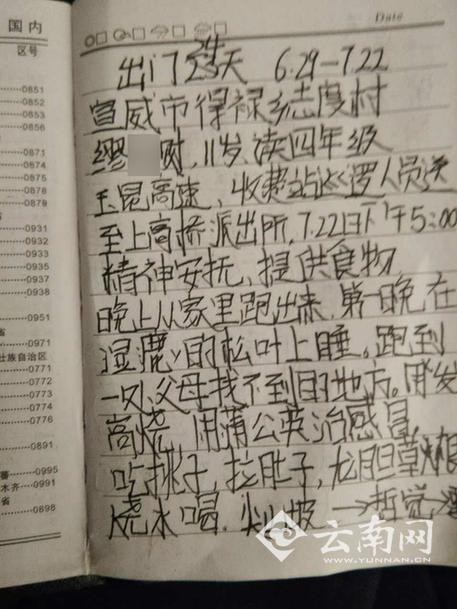 国内
区号
0851
0852
0853
0856
0871
0874
0875
0878
0879
0931
0932
0933
0935
0937
0938
0951
省
0971
壮族自治区
0771
0772
0773
0774
0776
0891
0995
木齐 0991
省 0898
Date
出门24天 6.29-7.22
宣威市得禄乡志度村
缪 财,11岁,读四年级
玉昆高速,收费站巡逻人员送
至上高桥派出所,7.22日下午5:00
精神安抚,提供食物
晚上从家里跑出来,第一晚在
湿漉漉的松叶上睡。跑到
一处父母找不到的地方。用发
高烧 用蒲公英治感冒
吃桃子,拉肚子,龙胆草根
烧水喝. 火山坡→哲觉
云南网
WWW.YUNNAN.CN